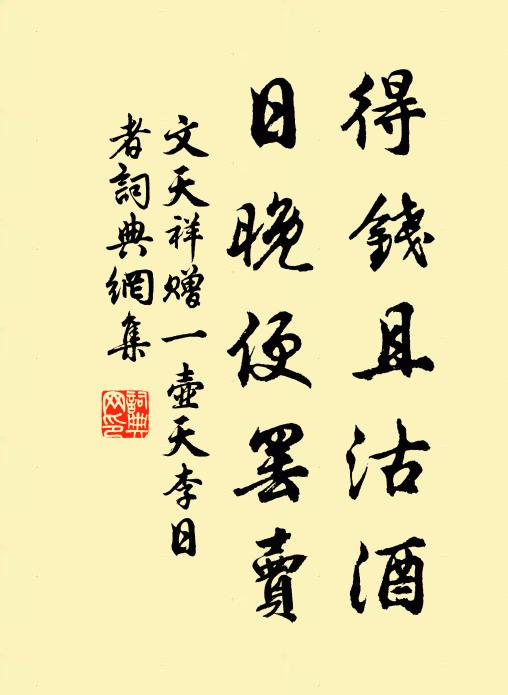 得錢且沽酒
日晚便罢賣
文天祥赠一壺天李日
者詞典網集
詞典網印